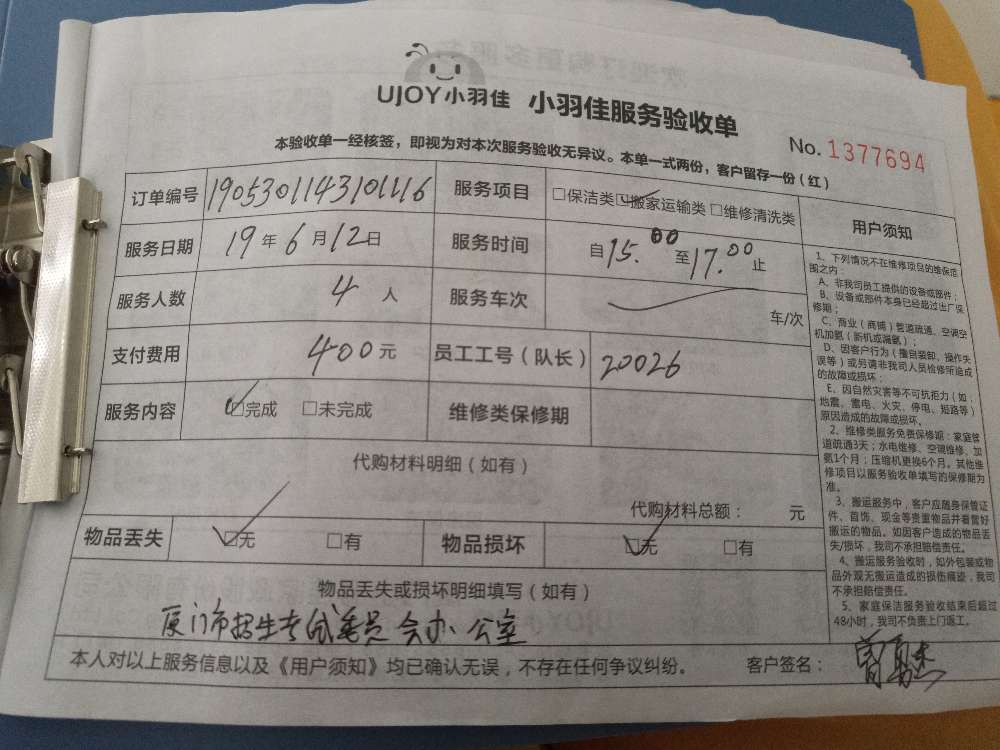 UJOY小羽佳 小羽佳服务验收单
No. 1377694
本验收单一经核签，即视为对本次服务验收无异议。本单一式两份，客户留存一份（红）
订单编号 1905301143101116 服务项目 □保洁类 ☑搬家运输类 □维修清洗类
服务日期 19年6月12日 服务时间 自15.00至17.00止
服务人数 4人 服务车次 车/次
支付费用 400元 员工工号（队长） 20026
服务内容 ☑完成 □未完成 维修类保修期
代购材料明细（如有）
代购材料总额： 元
物品丢失 ☑无 □有 物品损坏 ☑无 □有
物品丢失或损坏明细填写（如有）
厦门市招生考试委员会办公室
本人对以上服务信息以及《用户须知》均已确认无误，不存在任何争议纠纷。 客户签名：
用户须知
1、下列情况不在维修项目的维保范
围之内：
A、非我司员工提供的设备或部件；
B、设备或部件本身已经超过出厂保
修期；
C、商业（商铺）管道疏通、空调空
机加氨（新机或漏氨）；
D、因客户行为（擅自装卸、操作失
误等）或另请非我司人员检修所造成
的故障或损坏；
E、因自然灾害等不可抗拒力（如：
地震、雷电、火灾、停电、短路等）
原因造成的故障或损坏。
2、维修类服务免费保修期：家庭管
道疏通3天；水电维修、空调维修、加
氨1个月；压缩机更换6个月。其他维
修项目以服务验收单填写的保修期为
准。
3、搬运服务中，客户应随身保管证
件、首饰、现金等贵重物品并看管好
搬运的物品。如因客户造成的物品丢
失/损坏，我司不承担赔偿责任。
4、搬运服务验收时，如外包装或物
品外观无搬运造成的损伤痕迹，我司
不承担赔偿责任。
5、家庭保洁服务验收结束后超过
48小时，我司不负责上门返工。